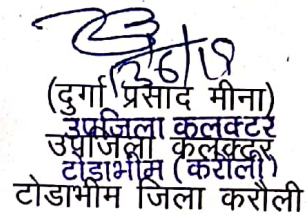 (दुर्गा प्रसाद मीना)
उपजिला कलक्टर
उपजिला कलक्टर
टोडाभीम (करौली)
टोडाभीम जिला करौली